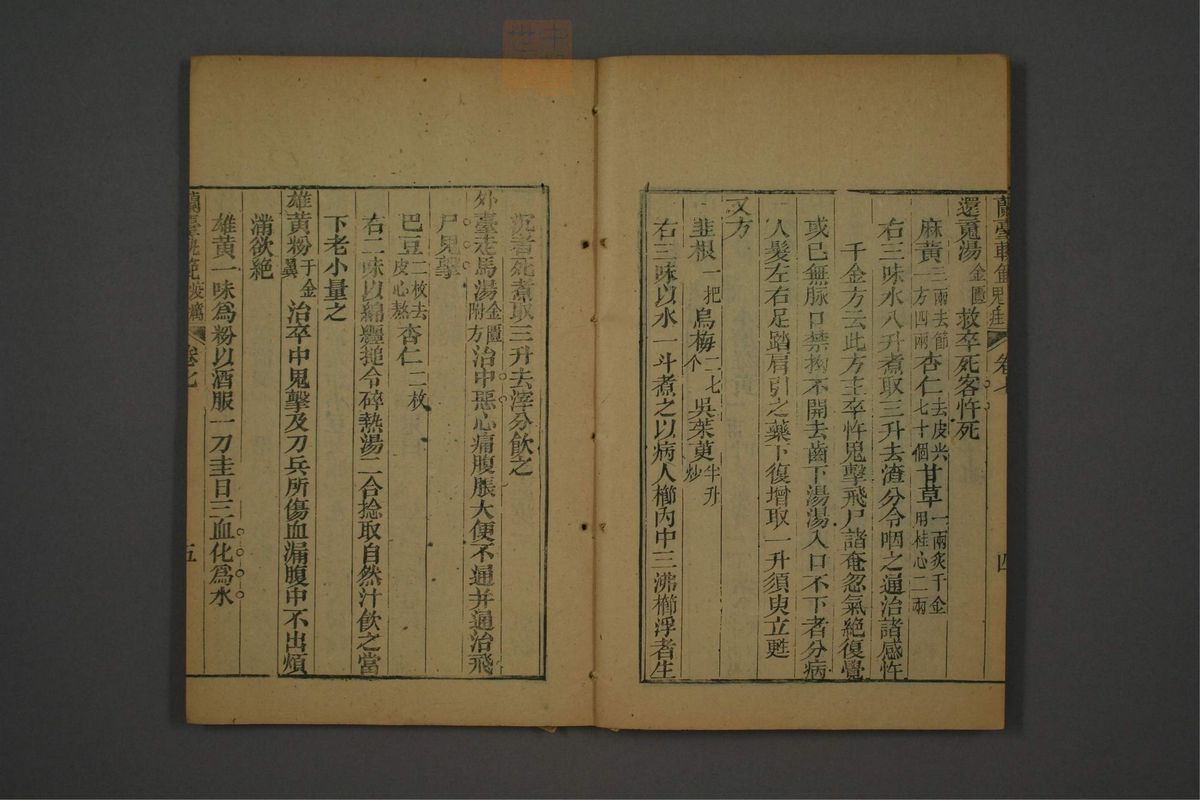 蘭臺軌範 卷七 四
還䰟湯金匱 救卒死客忤死
麻黃三兩去節一方四兩 杏仁去皮尖七十個 甘草一兩炙千金用桂心二兩
右三味水八升煮取三升去渣分令咽之通治諸感忤
千金方云此方主卒忤鬼擊飛尸諸奄忽氣絶復覺
或已無脉口禁拗不開去齒下湯湯入口不下者分病
人髮左右足踏肩引之藥下復增取一升須臾立甦
又方
韭根一把 烏梅二七个 吳茱萸半升炒
右三味以水一斗煮之以病人櫛內中三沸櫛浮者生
沉者死煮取三升去滓分飲之
外臺走馬湯金匱附方 治中惡心痛腹脹大便不通并通治飛
尸鬼擊
巴豆二枚去皮心熬 杏仁二枚
右二味以綿纒搥令碎熱湯二合捻取自然汁飲之當
下老小量之
雄黃粉千金翼 治卒中鬼擊及刀兵所傷血漏腹中不出煩
滿欲絶
雄黃一味爲粉以酒服一刀圭日三血化爲水
卷七 五